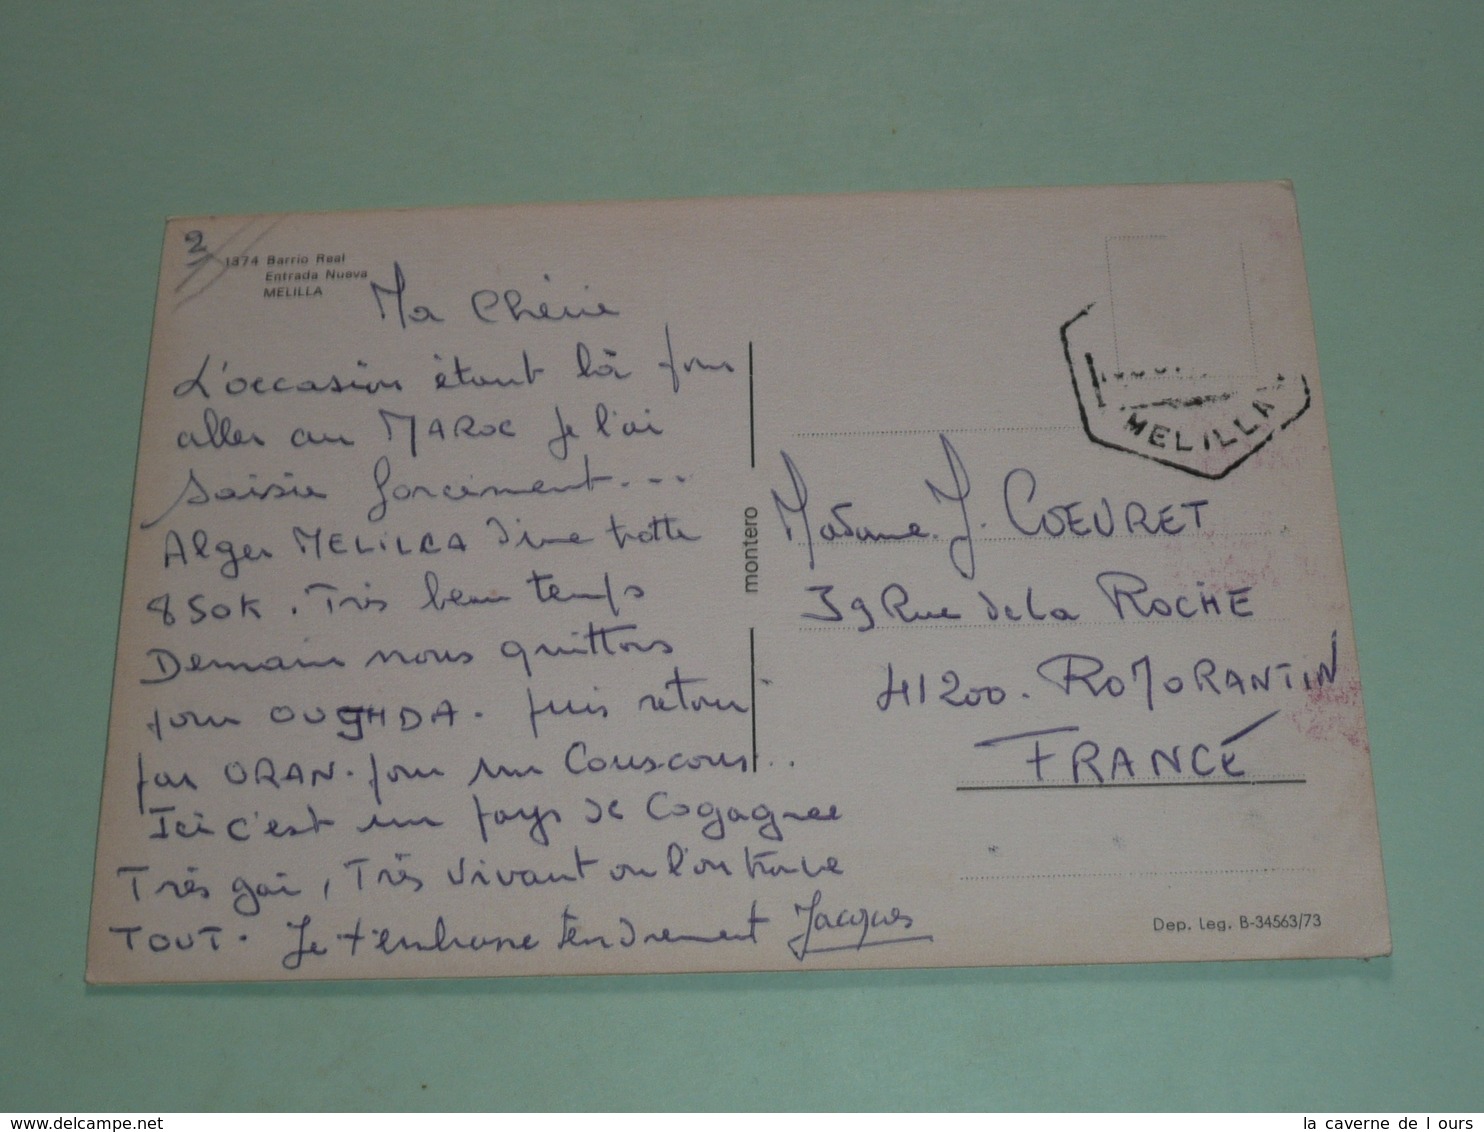 2
1374 Barrio Real
Entrada Nueva
MELILLA
Ma Chérie
L'occasion étant là pour
aller au MAROC je l'ai
saisie forcément...
Alger MELILLA d'une traite
850K. Très beau temps
Demain nous quittons
pour OUGHDA. puis retour
par ORAN. pour un Couscous...
Ici c'est un pays de Cogagnee
Très gai, Très vivant ou l'on trouve
TOUT. Je t'embrasse tendrement Jacques
montero
MELILLA
Madame J. COEURET
39 Rue de la ROCHE
41200. ROMORANTIN
FRANCE
Dep. Leg. B-34563/73
la caverne de l ours